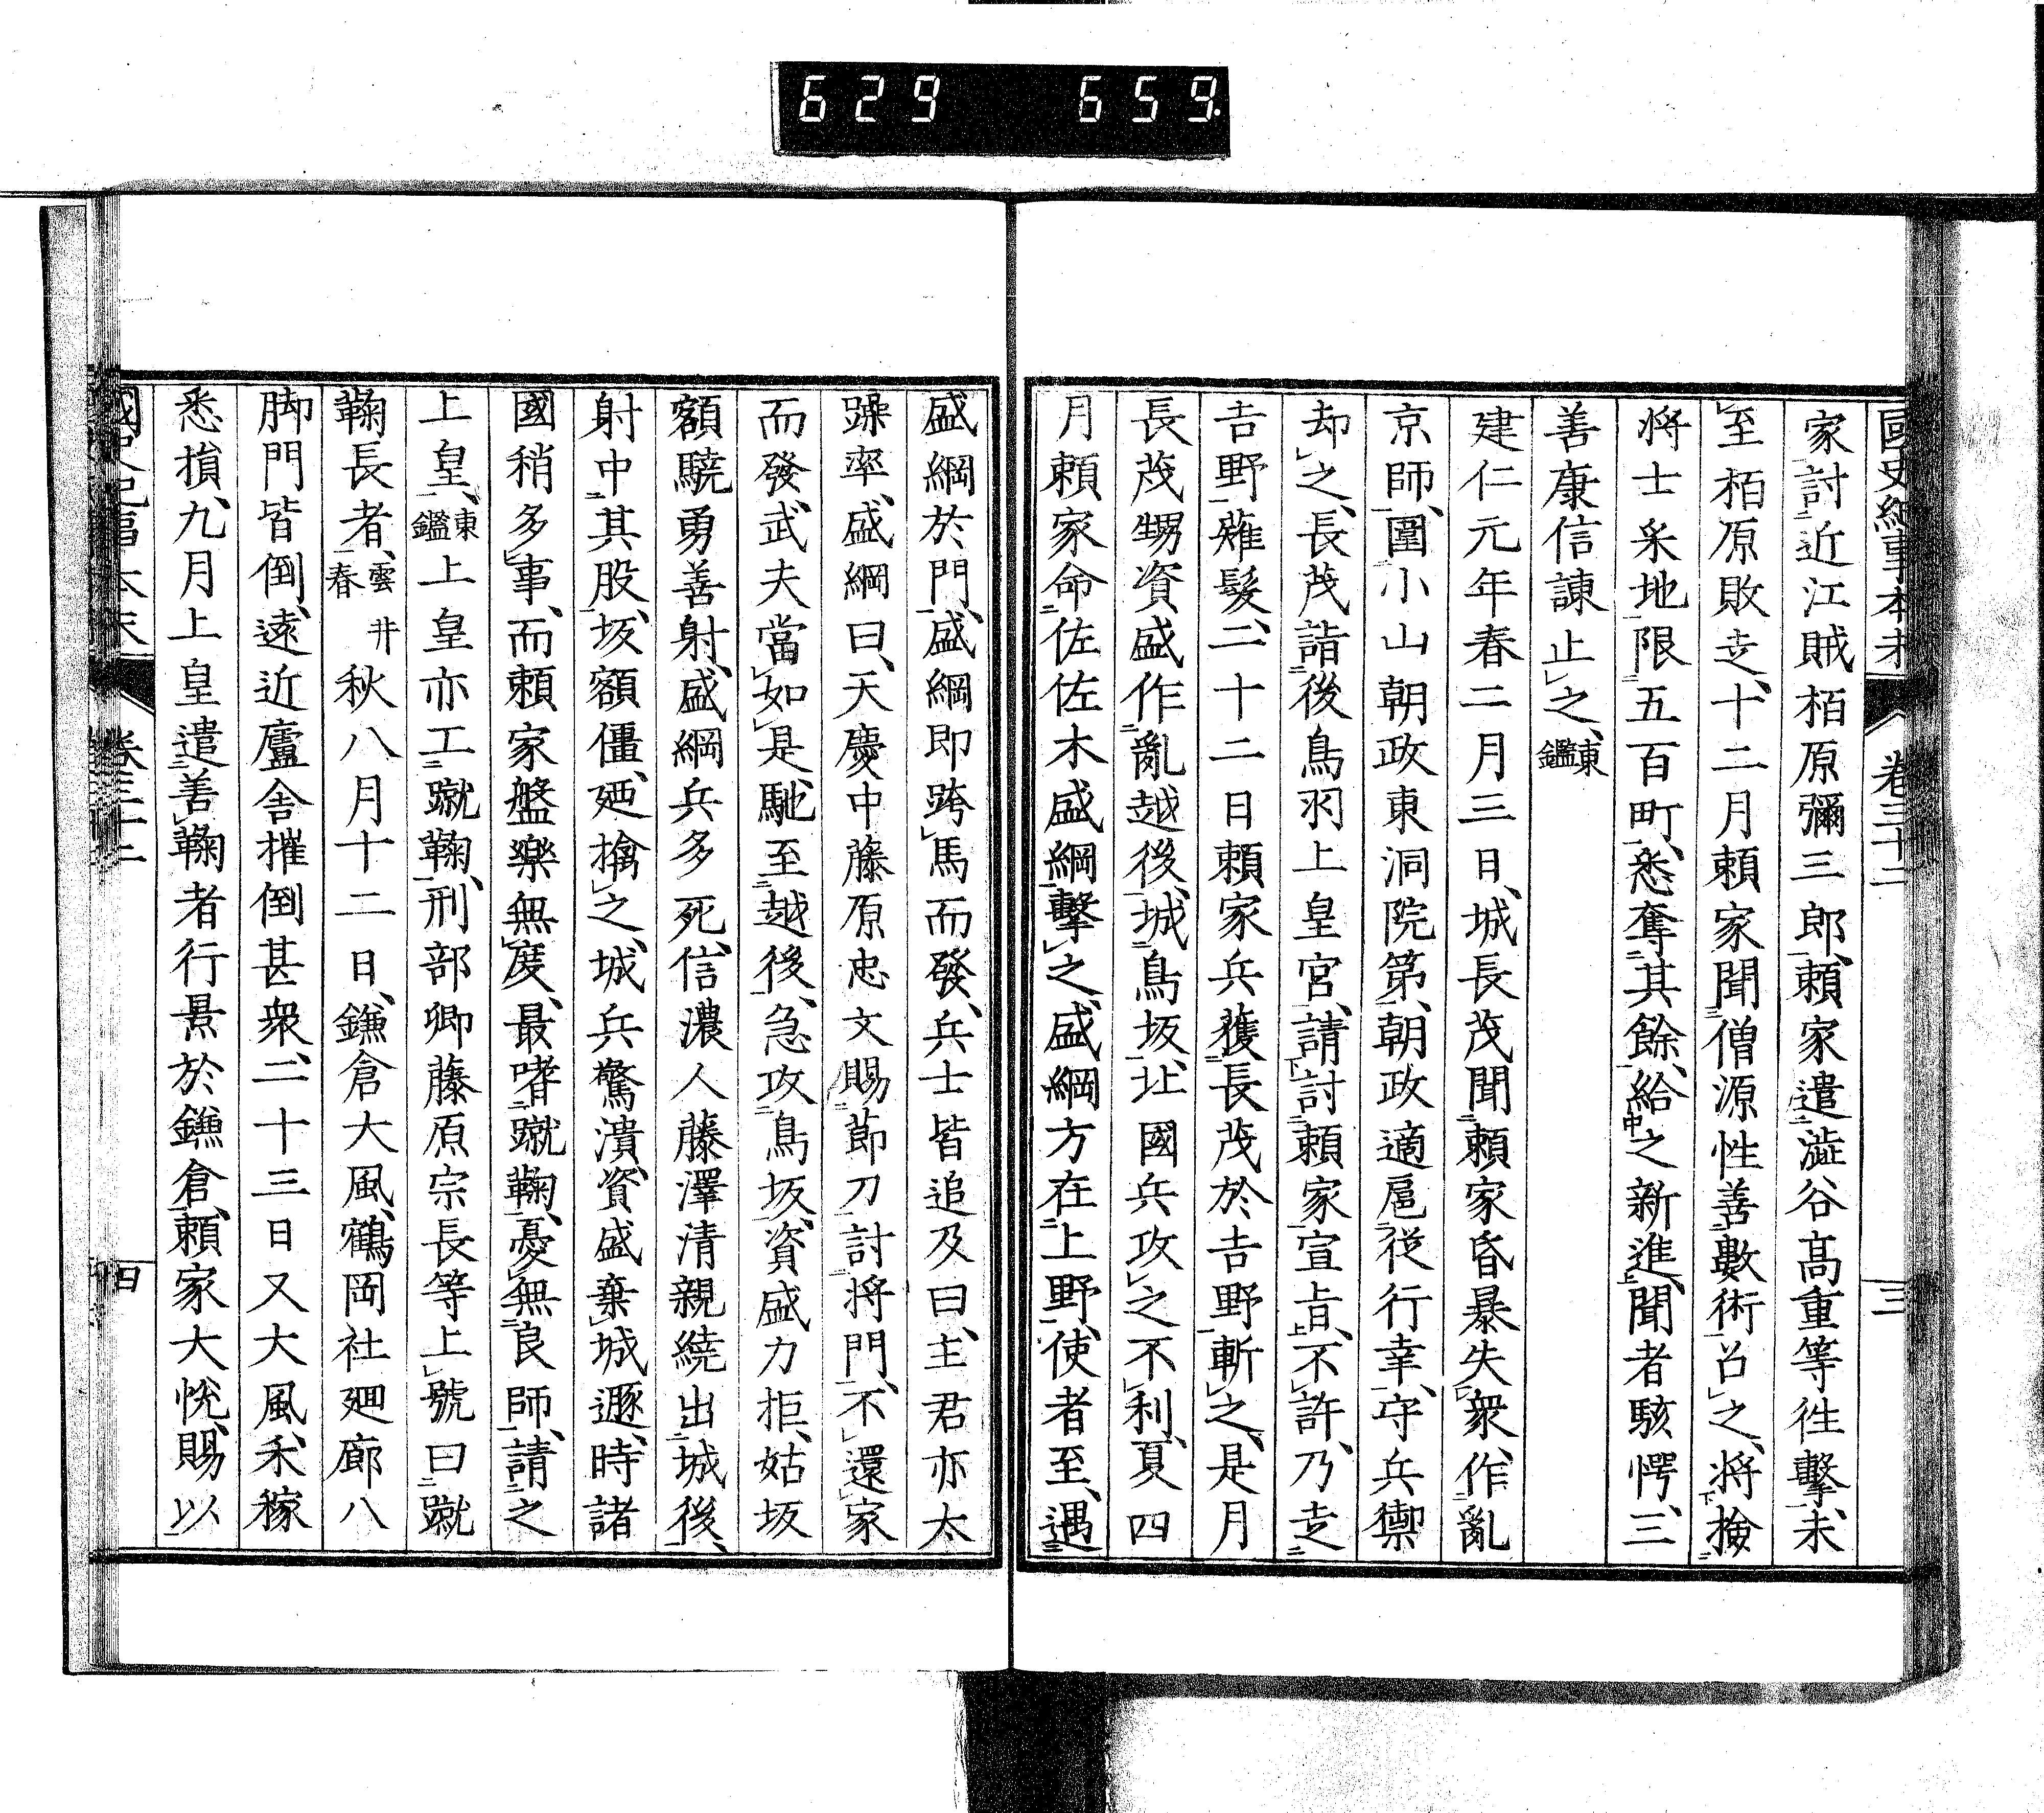 629 659.
國史紀事本末 卷三十二 三
家討近江賊栢原彌三郎、頼家遣澁谷高重等徃擊、未
至栢原敗走、十二月頼家聞僧源性善數術召之、將撿
將士采地限五百町、悉奪其餘、給之新進、聞者駭愕、三
善康信諫止之、東鑑
建仁元年春二月三日、城長茂聞頼家昏暴失衆、作亂
京師、圍小山朝政東洞院第、朝政適扈從行幸、守兵禦
却之、長茂詣後鳥羽上皇宮、請討頼家宣旨、不許、乃走
吉野薙髮、二十二日頼家兵獲長茂於吉野斬之、是月
長茂甥資盛作亂越後、城鳥坂、北國兵攻之不利、夏四
月頼家命佐佐木盛綱擊之、盛綱方在上野、使者至、遇
盛綱於門、盛綱即跨馬而發、兵士皆追及曰、主君亦太
躁率、盛綱曰、天慶中藤原忠文賜節刀討將門、不還家
而發、武夫當如是、馳至越後、急攻鳥坂、資盛力拒、姑坂
額驍勇善射、盛綱兵多死、信濃人藤澤清親繞出城後、
射中其股、坂額僵、廼擒之、城兵驚潰、資盛棄城遯、時諸
國稍多事、而頼家盤樂無度、最嗜蹴鞠、憂無良師、請之
上皇、東鑑 上皇亦工蹴鞠、刑部卿藤原宗長等上號曰蹴
鞠長者、雲井春 秋八月十二日、鎌倉大風、鶴岡社廻廊八
脚門皆倒、遠近廬舍摧倒甚衆、二十三日又大風、禾稼
悉損、九月上皇遣善鞠者行景於鎌倉、頼家大悅、賜以
國史紀事本末 卷三十二 四